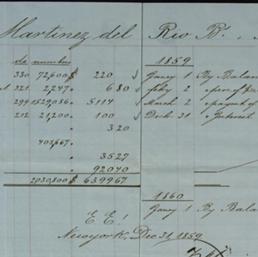 Martinez del Rio B.
ds numbers 1859
330 72,600 $ 220 Jany 1 By Balan
321 2,247 " 6 80 feby 2
299 1529,086 " 5114 March 2
212 21,200 " 100 Decb 31 " Interest
" 3 20
401,667 "
" 3527
" 92040
2030,800 $ 639967
1860
Jany 1 By Bala
E E!
Newyork, Dec. 31, 1859